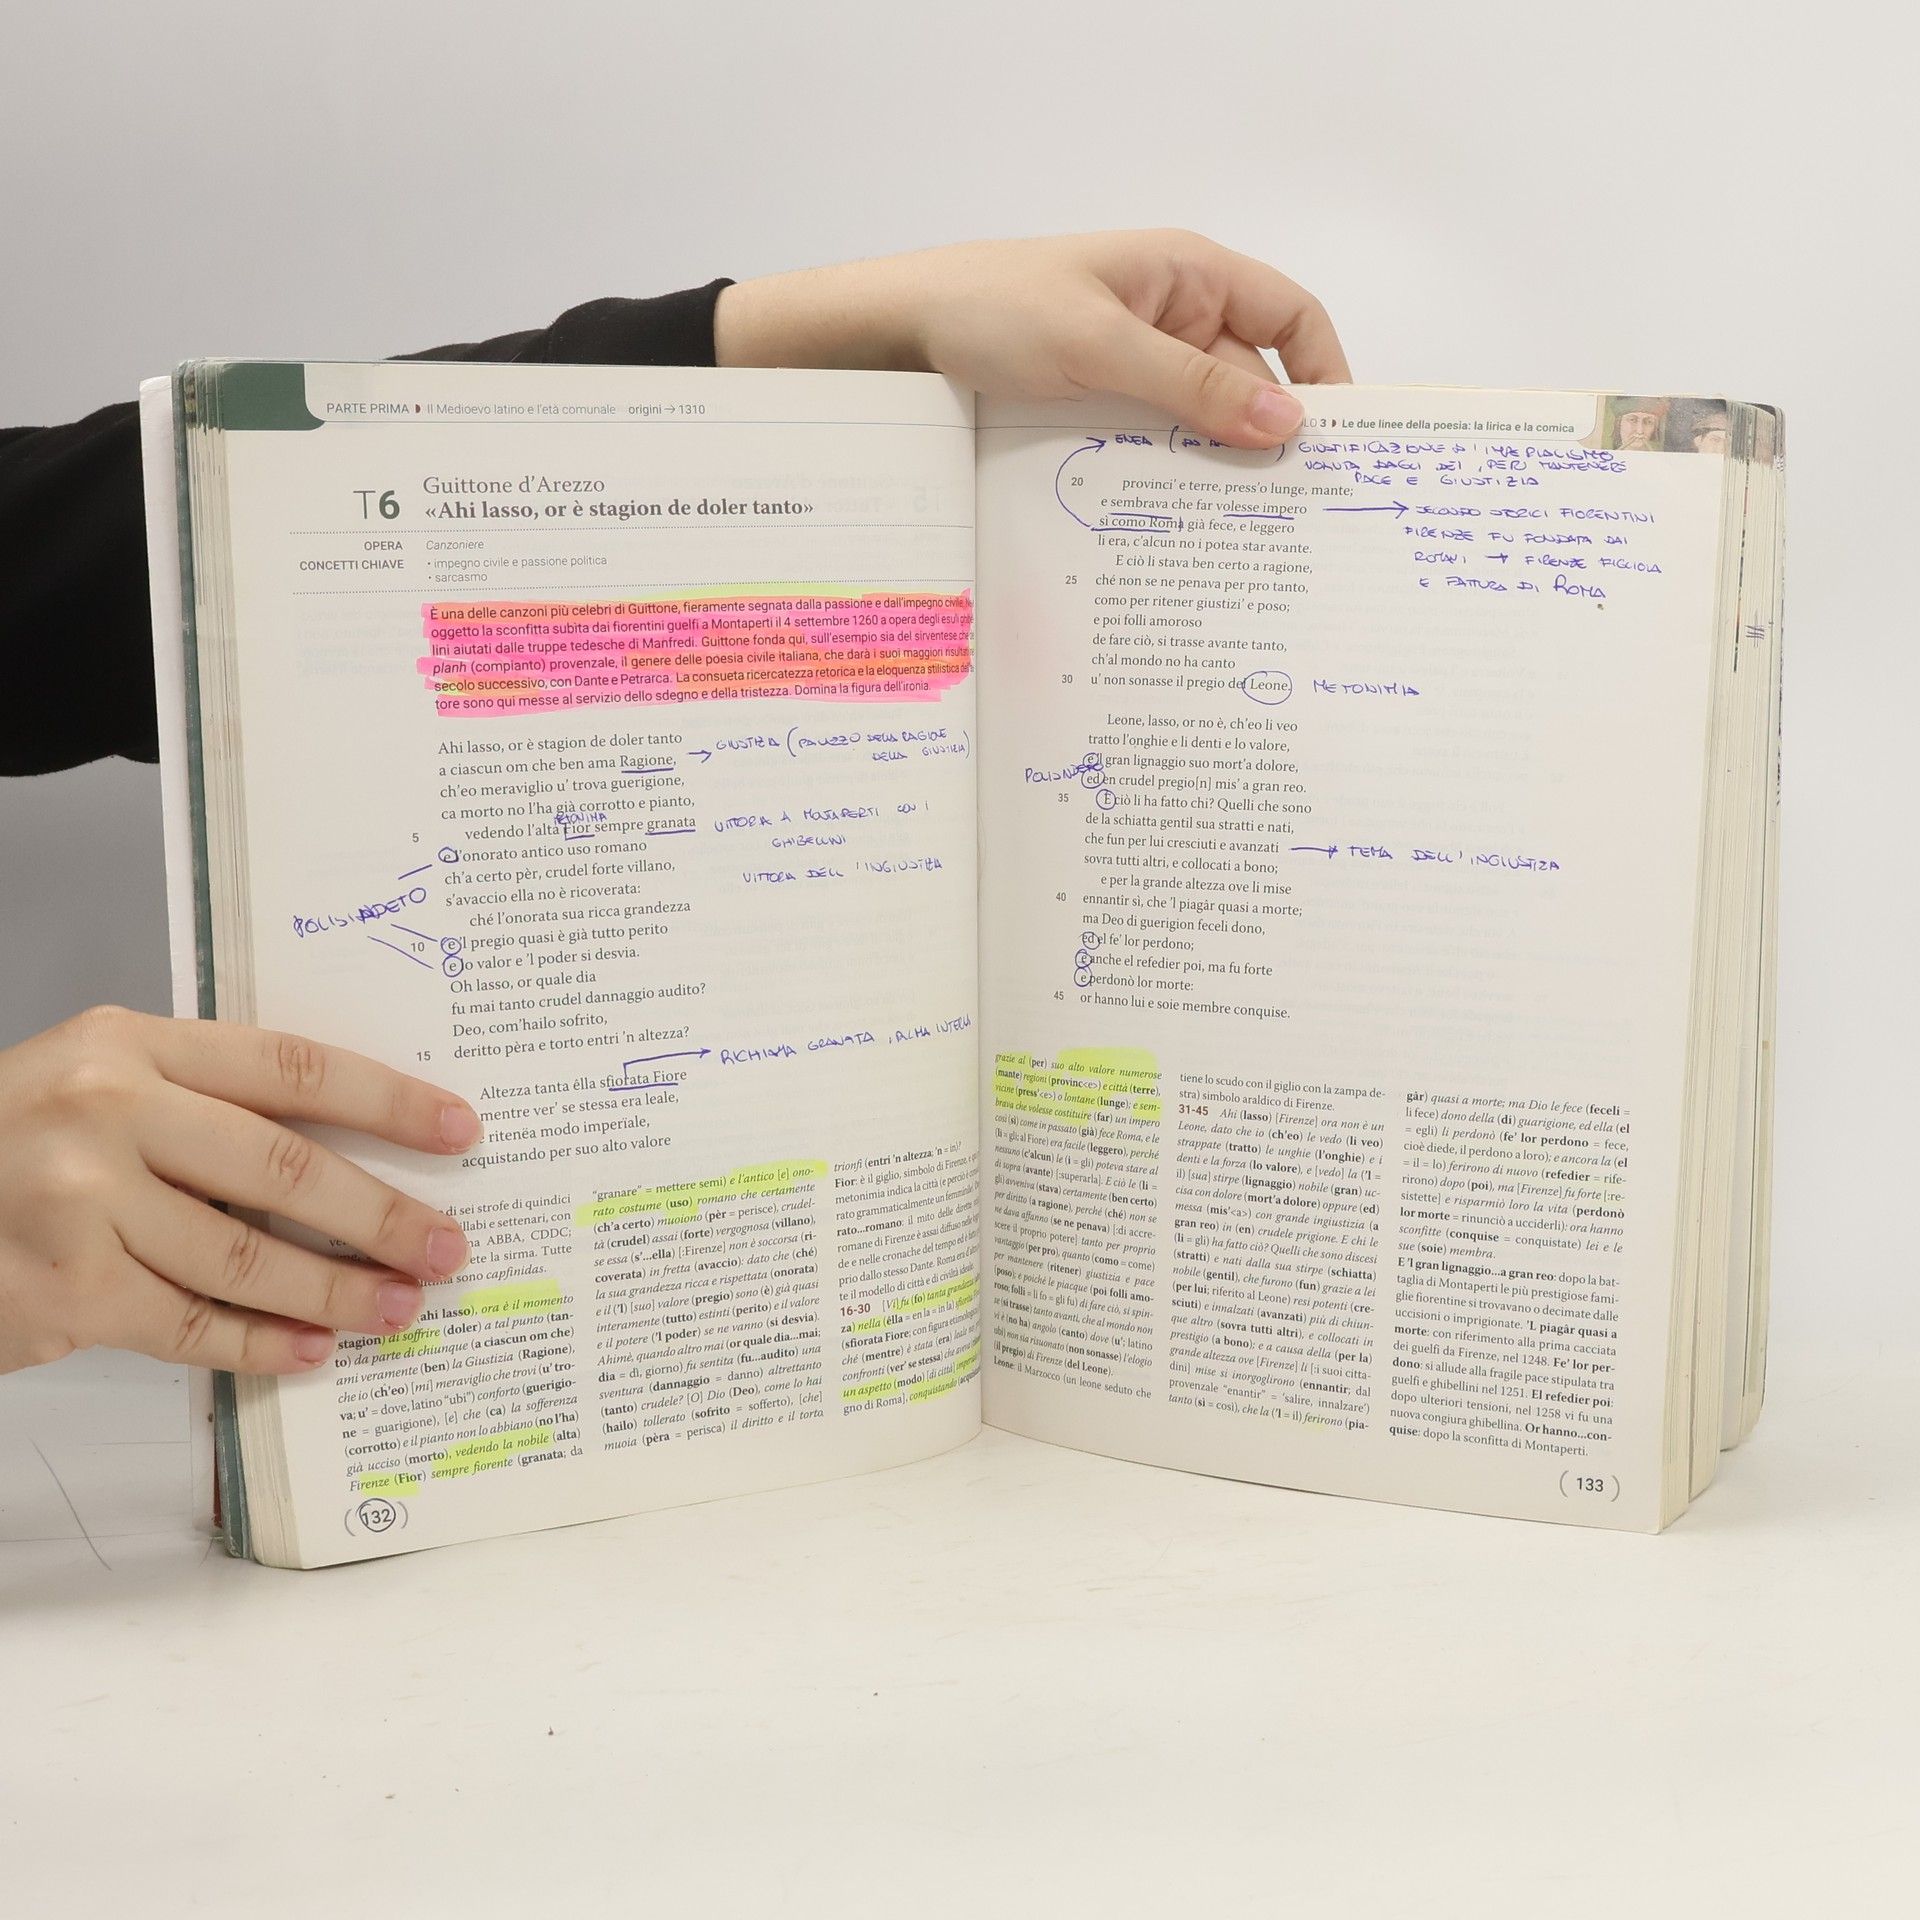 PARTE PRIMA Il Medioevo latino e l'età comunale origini → 1310
T6
Guittone d'Arezzo
«Ahi lasso, or è stagion de doler tanto»
OPERA Canzoniere
CONCETTI CHIAVE • impegno civile e passione politica
• sarcasmo
È una delle canzoni più celebri di Guittone, fieramente segnata dalla passione e dall'impegno civile.
oggetto la sconfitta subìta dai fiorentini guelfi a Montaperti il 4 settembre 1260 a opera degli esuli
lini aiutati dalle truppe tedesche di Manfredi. Guittone fonda qui, sull'esempio sia del sirventese che
planh (compianto) provenzale, il genere delle poesia civile italiana, che darà i suoi maggiori
secolo successivo, con Dante e Petrarca. La consueta ricercatezza retorica e la eloquenza stilistica
tore sono qui messe al servizio dello sdegno e della tristezza. Domina la figura dell'ironia.
Ahi lasso, or è stagion de doler tanto
a ciascun om che ben ama Ragione,
ch'eo meraviglio u' trova guerigione,
ca morto no l'ha già corrotto e pianto,
5 vedendo l'alta Fior sempre granata
e l'onorato antico uso romano
ch'a certo pèr, crudel forte villano,
s'avaccio ella no è ricoverata:
ché l'onorata sua ricca grandezza
10 e 'l pregio quasi è già tutto perito
e lo valor e 'l poder si desvia.
Oh lasso, or quale dia
fu mai tanto crudel dannaggio audito?
Deo, com'hailo sofrito,
15 deritto pèra e torto entri 'n altezza?
Altezza tanta êlla sfiorata Fiore
mentre ver' se stessa era leale,
ritenëa modo imperïale,
acquistando per suo alto valore
GIUSTIZIA (PALAZZO DELLA RAGIONE
DELLA GIUSTIZIA)
VITTORIA A MONTAPERTI CON I
GHIBELLINI
VITTORIA DELL'INGIUSTIZIA
POLISINDETO
RICHIAMA GRANATA,
di sei strofe di quindici
e settenari, con
ABBA, CDDC;
la sirma. Tutte
sono capfinidas.
(ahi lasso), ora è il momento
stagion) di soffrire (doler) a tal punto (tan-
to) da parte di chiunque (a ciascun om che)
ami veramente (ben) la Giustizia (Ragione),
che io (ch'eo) [mi] meraviglio che trovi (u' tro-
va; u' = dove, latino "ubi") conforto (guerigio-
ne = guarigione), [e] che (ca) la sofferenza
(corrotto) e il pianto non lo abbiano (no l'ha)
già ucciso (morto), vedendo la nobile (alta)
Firenze (Fior) sempre fiorente (granata; da
"granare" = mettere semi) e l'antico [e] ono-
rato costume (uso) romano che certamente
(ch'a certo) muoiono (pèr = perisce), crudel-
tà (crudel) assai (forte) vergognosa (villano),
se essa (s'...ella) [:Firenze] non è soccorsa (ri-
coverata) in fretta (avaccio): dato che (ché)
la sua grandezza ricca e rispettata (onorata)
e il ('l) [suo] valore (pregio) sono (è) già quasi
interamente (tutto) estinti (perito) e il valore
e il potere ('l poder) se ne vanno (si desvia).
Ahimè, quando altro mai (or quale dia...mai;
dia = dì, giorno) fu sentita (fu...audito) una
sventura (dannaggio = danno) altrettanto
(tanto) crudele? [O] Dio (Deo), come lo hai
(hailo) tollerato (sofrito = sofferto), [che]
muoia (pèra = perisca) il diritto e il torto
trionfi (entri 'n altezza; 'n = in)?
Fior: è il giglio, simbolo di Firenze,
metonimia indica la città (e perciò è
rato grammaticalmente un femminile).
rato...romano: il mito delle dirette
romane di Firenze è assai diffuso nelle
de e nelle cronache del tempo ed è
prio dallo stesso Dante. Roma era
te il modello di città e di civiltà ideale.
16-30 [Vi] fu (fo) tanta grandezza
za) nella (êlla = en la = in la)
(sfiorata Fiore; con figura etimologica
ché (mentre) è stata (era) leale
confronti (ver' se stessa) che aveva
un aspetto (modo) [di città]
gno di Roma], conquistando
(132)
3 Le due linee della poesia: la lirica e la comica
ENEA
GIUSTIFICAZIONE D'IMPERIALISMO
VOLUTA DAGLI DEI, PER MANTENERE
PACE E GIUSTIZIA
20 provinci' e terre, press'o lunge, mante;
e sembrava che far volesse impero
sì como Roma già fece, e leggero
li era, c'alcun no i potea star avante.
E ciò li stava ben certo a ragione,
25 ché non se ne penava per pro tanto,
como per ritener giustizi' e poso;
e poi folli amoroso
de fare ciò, si trasse avante tanto,
ch'al mondo no ha canto
30 u' non sonasse il pregio del Leone.
METONIMIA
SECONDO STORICI FIORENTINI
FIRENZE FU FONDATA DAI
ROMANI → FIRENZE FIGLIOLA
E FATTURA DI ROMA
Leone, lasso, or no è, ch'eo li veo
tratto l'onghie e li denti e lo valore,
e 'l gran lignaggio suo mort'a dolore,
ed en crudel pregio[n] mis' a gran reo.
35 E ciò li ha fatto chi? Quelli che sono
de la schiatta gentil sua stratti e nati,
che fun per lui cresciuti e avanzati
sovra tutti altri, e collocati a bono;
e per la grande altezza ove li mise
40 ennantîr sì, che 'l piagâr quasi a morte;
ma Deo di guerigion feceli dono,
ed el fe' lor perdono;
e anche el refedier poi, ma fu forte
e perdonò lor morte:
45 or hanno lui e soie membre conquise.
POLISINDETO
TEMA DELL'INGIUSTIZIA
grazie al (per) suo alto valore numerose
(mante) regioni (provinc<e>) e città (terre),
vicine (press'<e>) o lontane (lunge); e sem-
brava che volesse costituire (far) un impero
così (sì) come in passato (già) fece Roma, e le
(li = gli; al Fiore) era facile (leggero), perché
nessuno (c'alcun) le (i = gli) poteva stare al
di sopra (avante) [:superarla]. E ciò le (li =
gli) avveniva (stava) certamente (ben certo)
per diritto (a ragione), perché (ché) non se
ne dava affanno (se ne penava) [:di accre-
scere il proprio potere] tanto per proprio
vantaggio (per pro), quanto (como = come)
per mantenere (ritener) giustizia e pace
(poso); e poiché le piacque (poi folli amo-
roso; folli = li fo = gli fu) di fare ciò, si spin-
se (si trasse) tanto avanti, che al mondo non
vi è (no ha) angolo (canto) dove (u'; latino
ubi) non sia risuonato (non sonasse) l'elogio
(il pregio) di Firenze (del Leone).
Leone: il Marzocco (un leone seduto che
tiene lo scudo con il giglio con la zampa de-
stra) simbolo araldico di Firenze.
31-45 Ahi (lasso) [Firenze] ora non è un
Leone, dato che io (ch'eo) le vedo (li veo)
strappate (tratto) le unghie (l'onghie) e i
denti e la forza (lo valore), e [vedo] la ('l =
il) [sua] stirpe (lignaggio) nobile (gran) uc-
cisa con dolore (mort'a dolore) oppure (ed)
messa (mis'<a>) con grande ingiustizia (a
gran reo) in (en) crudele prigione. E chi le
(li = gli) ha fatto ciò? Quelli che sono discesi
(stratti) e nati dalla sua stirpe (schiatta)
nobile (gentil), che furono (fun) grazie a lei
(per lui; riferito al Leone) resi potenti (cre-
sciuti) e innalzati (avanzati) più di chiun-
que altro (sovra tutti altri), e collocati in
prestigio (a bono); e a causa della (per la)
grande altezza ove [Firenze] li [:i suoi citta-
dini] mise si inorgoglirono (ennantir; dal
provenzale "enantir" = 'salire, innalzare')
tanto (sì = così), che la ('l = il) ferirono (pia-
gâr) quasi a morte; ma Dio le fece (feceli =
li fece) dono della (di) guarigione, ed ella (el
= egli) li perdonò (fe' lor perdono = fece,
cioè diede, il perdono a loro); e ancora la (el
= il = lo) ferirono di nuovo (refedier = rife-
rirono) dopo (poi), ma [Firenze] fu forte [:re-
sistette] e risparmiò loro la vita (perdonò
lor morte = rinunciò a ucciderli): ora hanno
sconfitte (conquise = conquistate) lei e le
sue (soie) membra.
E 'l gran lignaggio...a gran reo: dopo la bat-
taglia di Montaperti le più prestigiose fami-
glie fiorentine si trovavano o decimate dalle
uccisioni o imprigionate. 'L piagâr quasi a
morte: con riferimento alla prima cacciata
dei guelfi da Firenze, nel 1248. Fe' lor per-
dono: si allude alla fragile pace stipulata tra
guelfi e ghibellini nel 1251. El refedier poi:
dopo ulteriori tensioni, nel 1258 vi fu una
nuova congiura ghibellina. Or hanno...con-
quise: dopo la sconfitta di Montaperti.
(133)